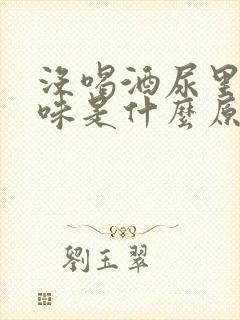 沒喝酒尿里
味是什麼原
劉玉翠